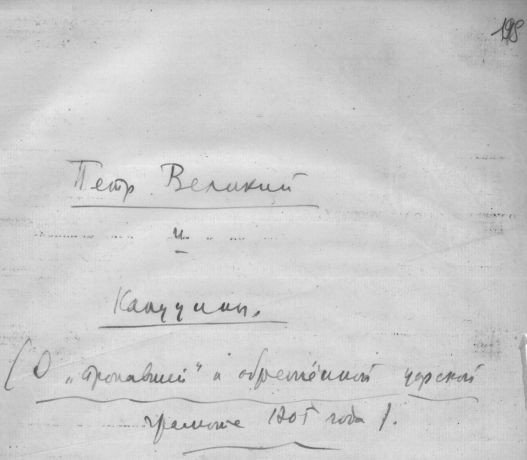 198
Петр Великий
и
Капуцины.
(О „пропавшей" и обретённой царской
грамоте 1705 года).